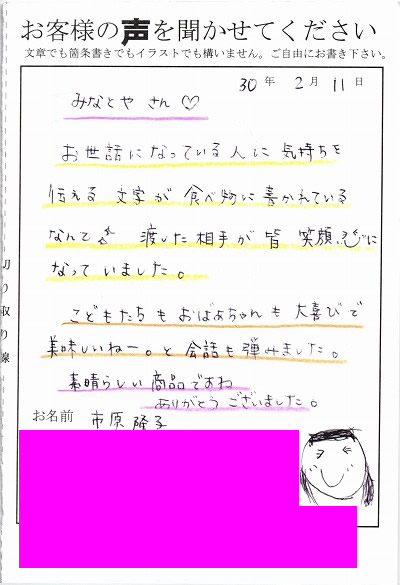 お客様の声を聞かせてください
文章でも箇条書きでもイラストでも構いません。ご自由にお書き下さい。
30年 2月 11日
みなとや さん♡
お世話になっている人に 気持ちを
伝える 文字が 食べ物に書かれている
なんて 渡した相手が皆 笑顔に
なって いました。
こどもたちも おばあちゃんも 大喜びで
美味しいねー。と 会話も弾みました。
素晴らしい 商品ですね
ありがとう ございました。
お名前 市原 隆子
切り取り線